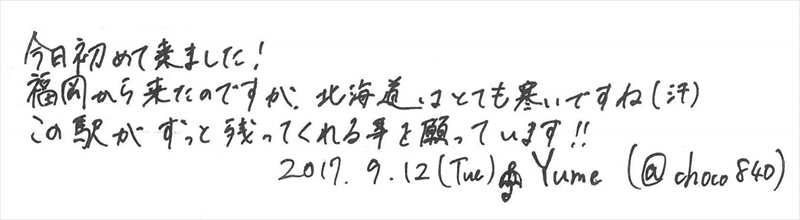 今日初めて来ました!
福岡から来たのですが、北海道はとても寒いですね(汗)
この駅がずっと残ってくれる事を願っています!!
2017. 9. 12 (Tue) Yume (@choco840)